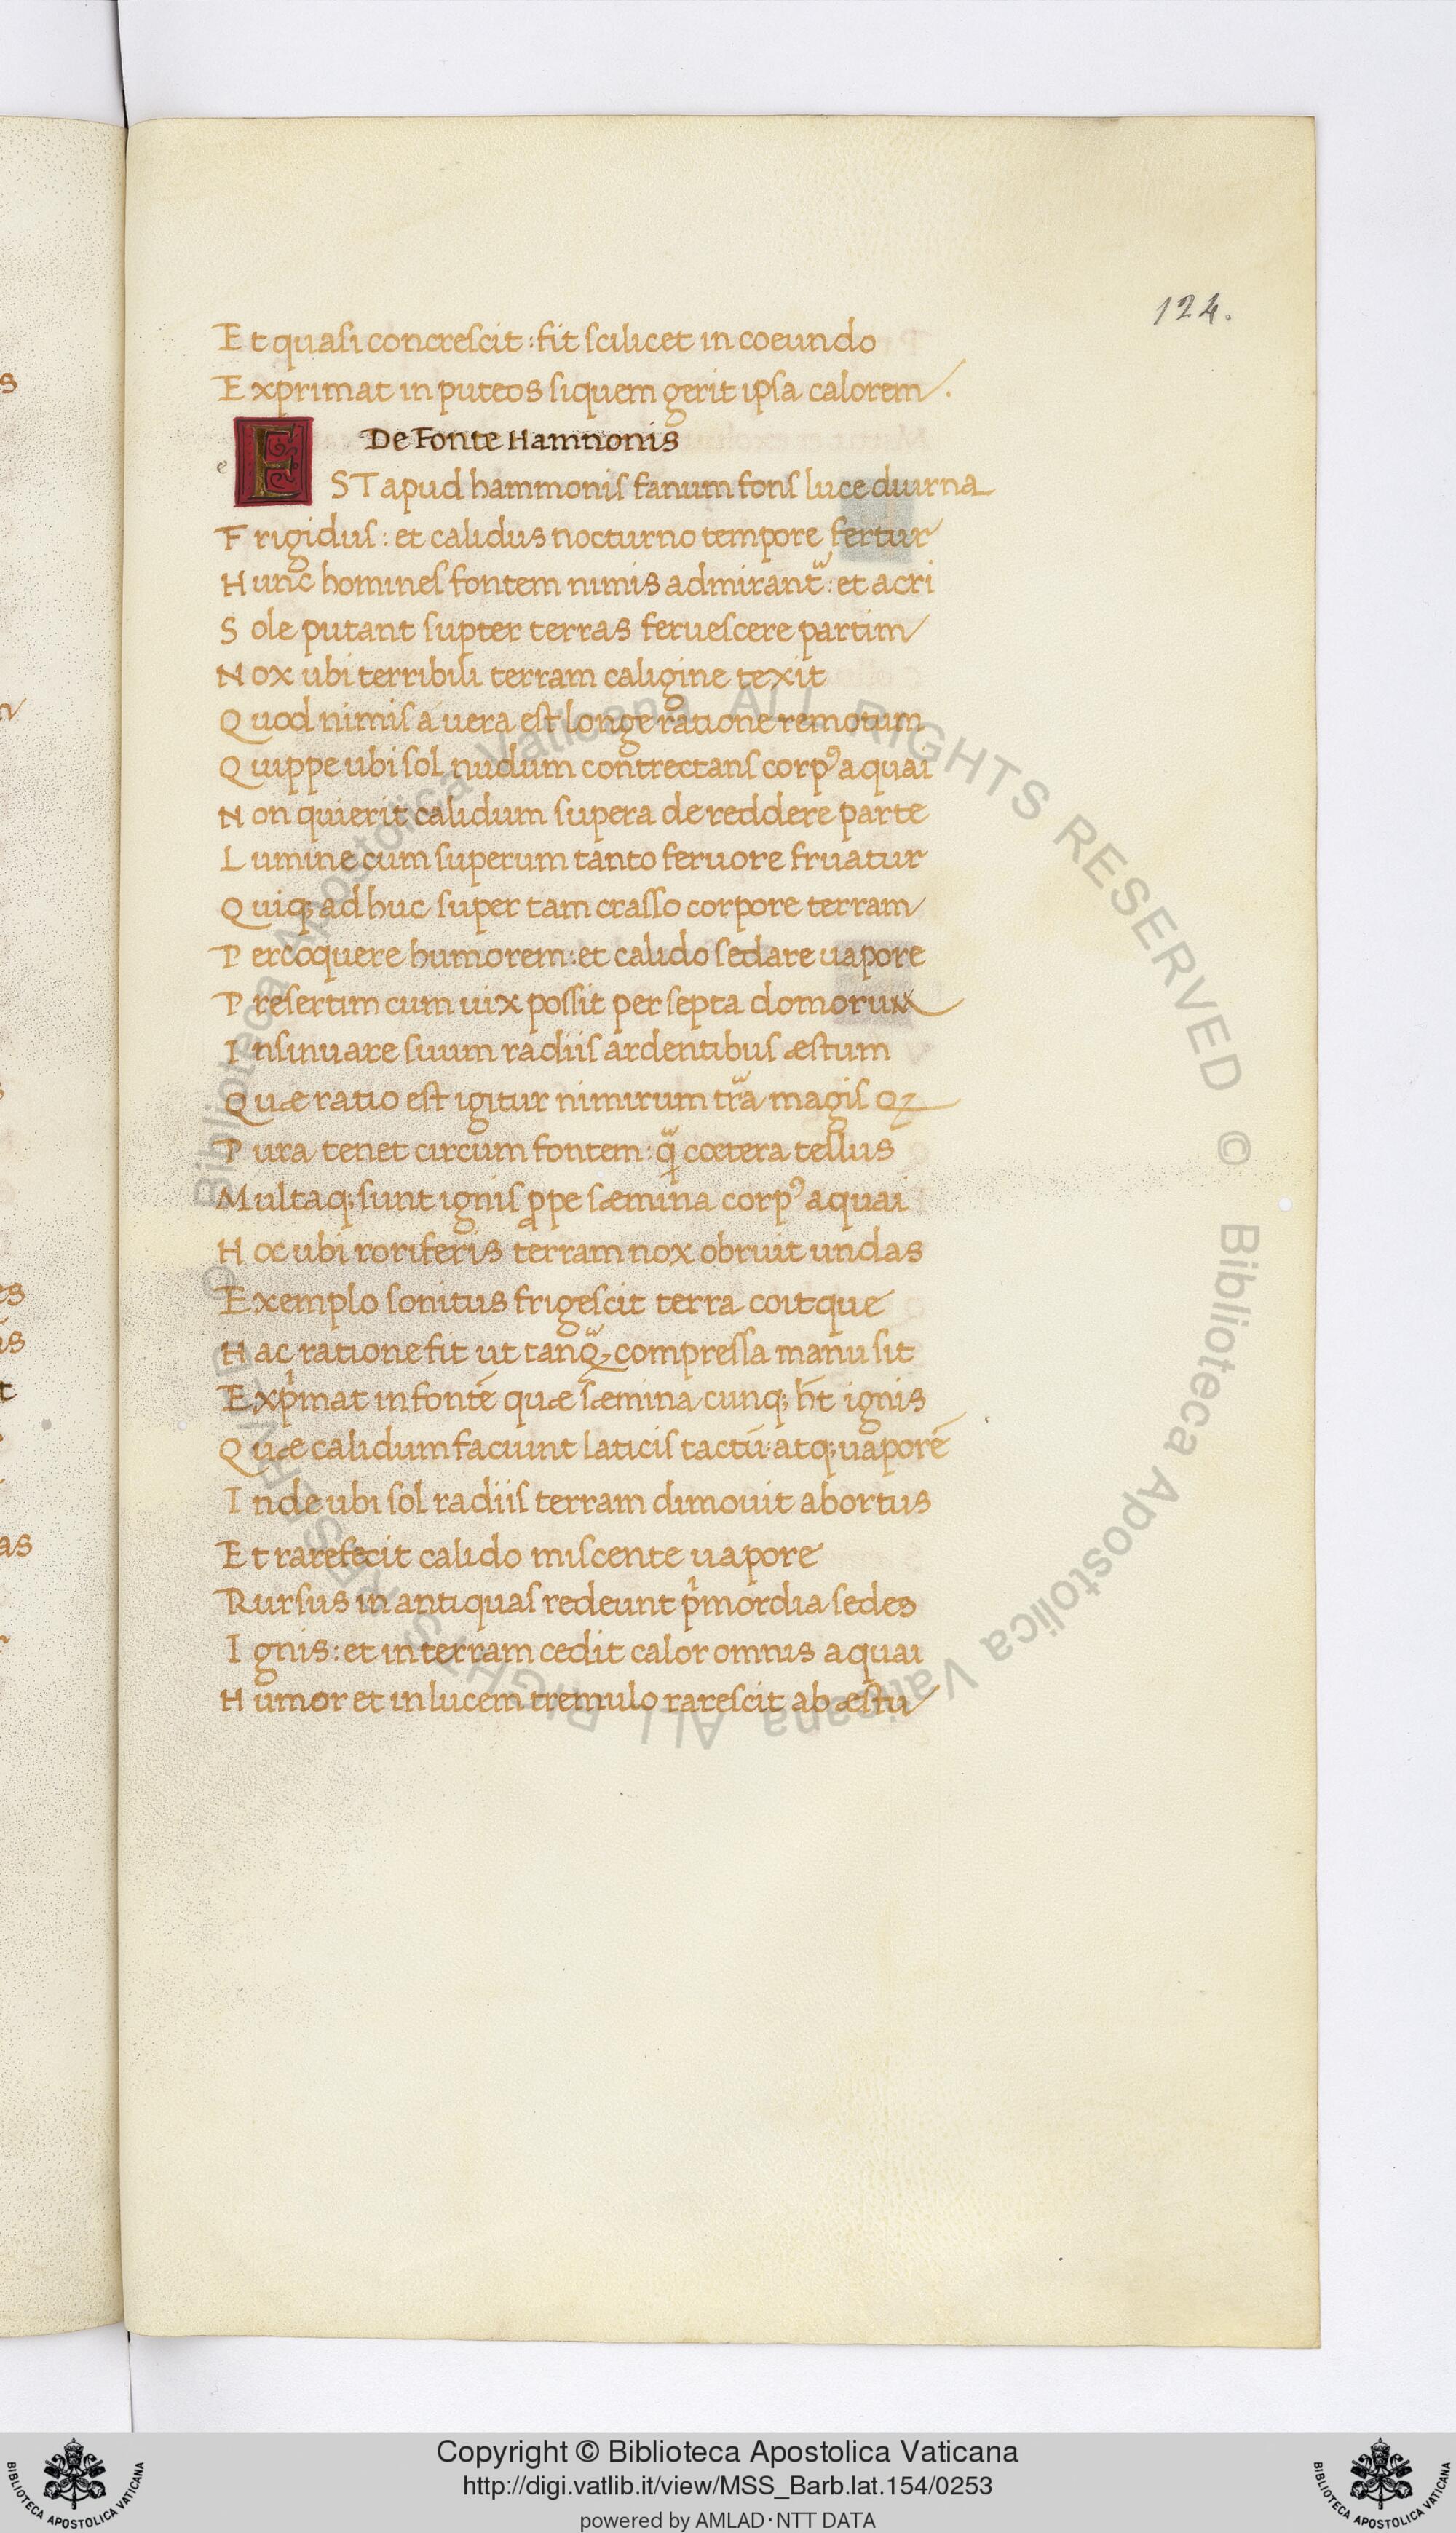 124.
Et quasi concrescit : fit scilicet in coeundo
Exprimat in puteos siquem gerit ipsa calorem.
De Fonte Hammonis
e
EST apud hammonis fanum fons luce diurna
Frigidus : et calidus nocturno tempore fertur
Hunc homines fontem nimis admirant᷑ : et acri
Sole putant supter terras feruescere partim
Nox ubi terribili terram caligine texit
Quod nimis á uera est longe ratione remotum
Quippe ubi sol nudum contrectans corpꝰ aquai
Non quierit calidum supera de reddere parte
Lumine cum superum tanto feruore fruatur
Quiq; adhuc super tam crasso corpore terram
Percoquere humorem : et calido sedare uapore
Presertim cum uix possit per septa domorum
Insinuare suum radiis ardentibus æstum
Quæ ratio est igitur nimirum tr̃a magis qꝫ
Pura tenet circum fontem : q̃ cœtera tellus
Multaq; sunt ignis ꝓpe sæmina corpꝰ aquai
Hoc ubi roriferis terram nox obruit undas
Exemplo sonitus frigescit terra coitque
Hac ratione fit ut tanq̃ꝫ compressa manu sit
Exp̍mat in fontē quæ sæmina cunq; hn̄t ignis
Quæ calidum faciunt laticis tactū : atq; uaporē
Inde ubi sol radiis terram dimouit abortus
Et rarefecit calido miscente uapore
Rursus in antiquas redeunt p̍mordia sedes
Ignis : et in terram cedit calor omnis aquai
Humor et in lucem tremulo rarescit ab æstu
© Biblioteca Apostolica Vaticana ALL RIGHTS RESERVED © Biblioteca Apostolica Vaticana ALL RIGHTS RESERVED
Copyright © Biblioteca Apostolica Vaticana
http://digi.vatlib.it/view/MSS_Barb.lat.154/0253
powered by AMLAD·NTT DATA
BIBLIOTECA APOSTOLICA VATICANA
BIBLIOTECA APOSTOLICA VATICANA